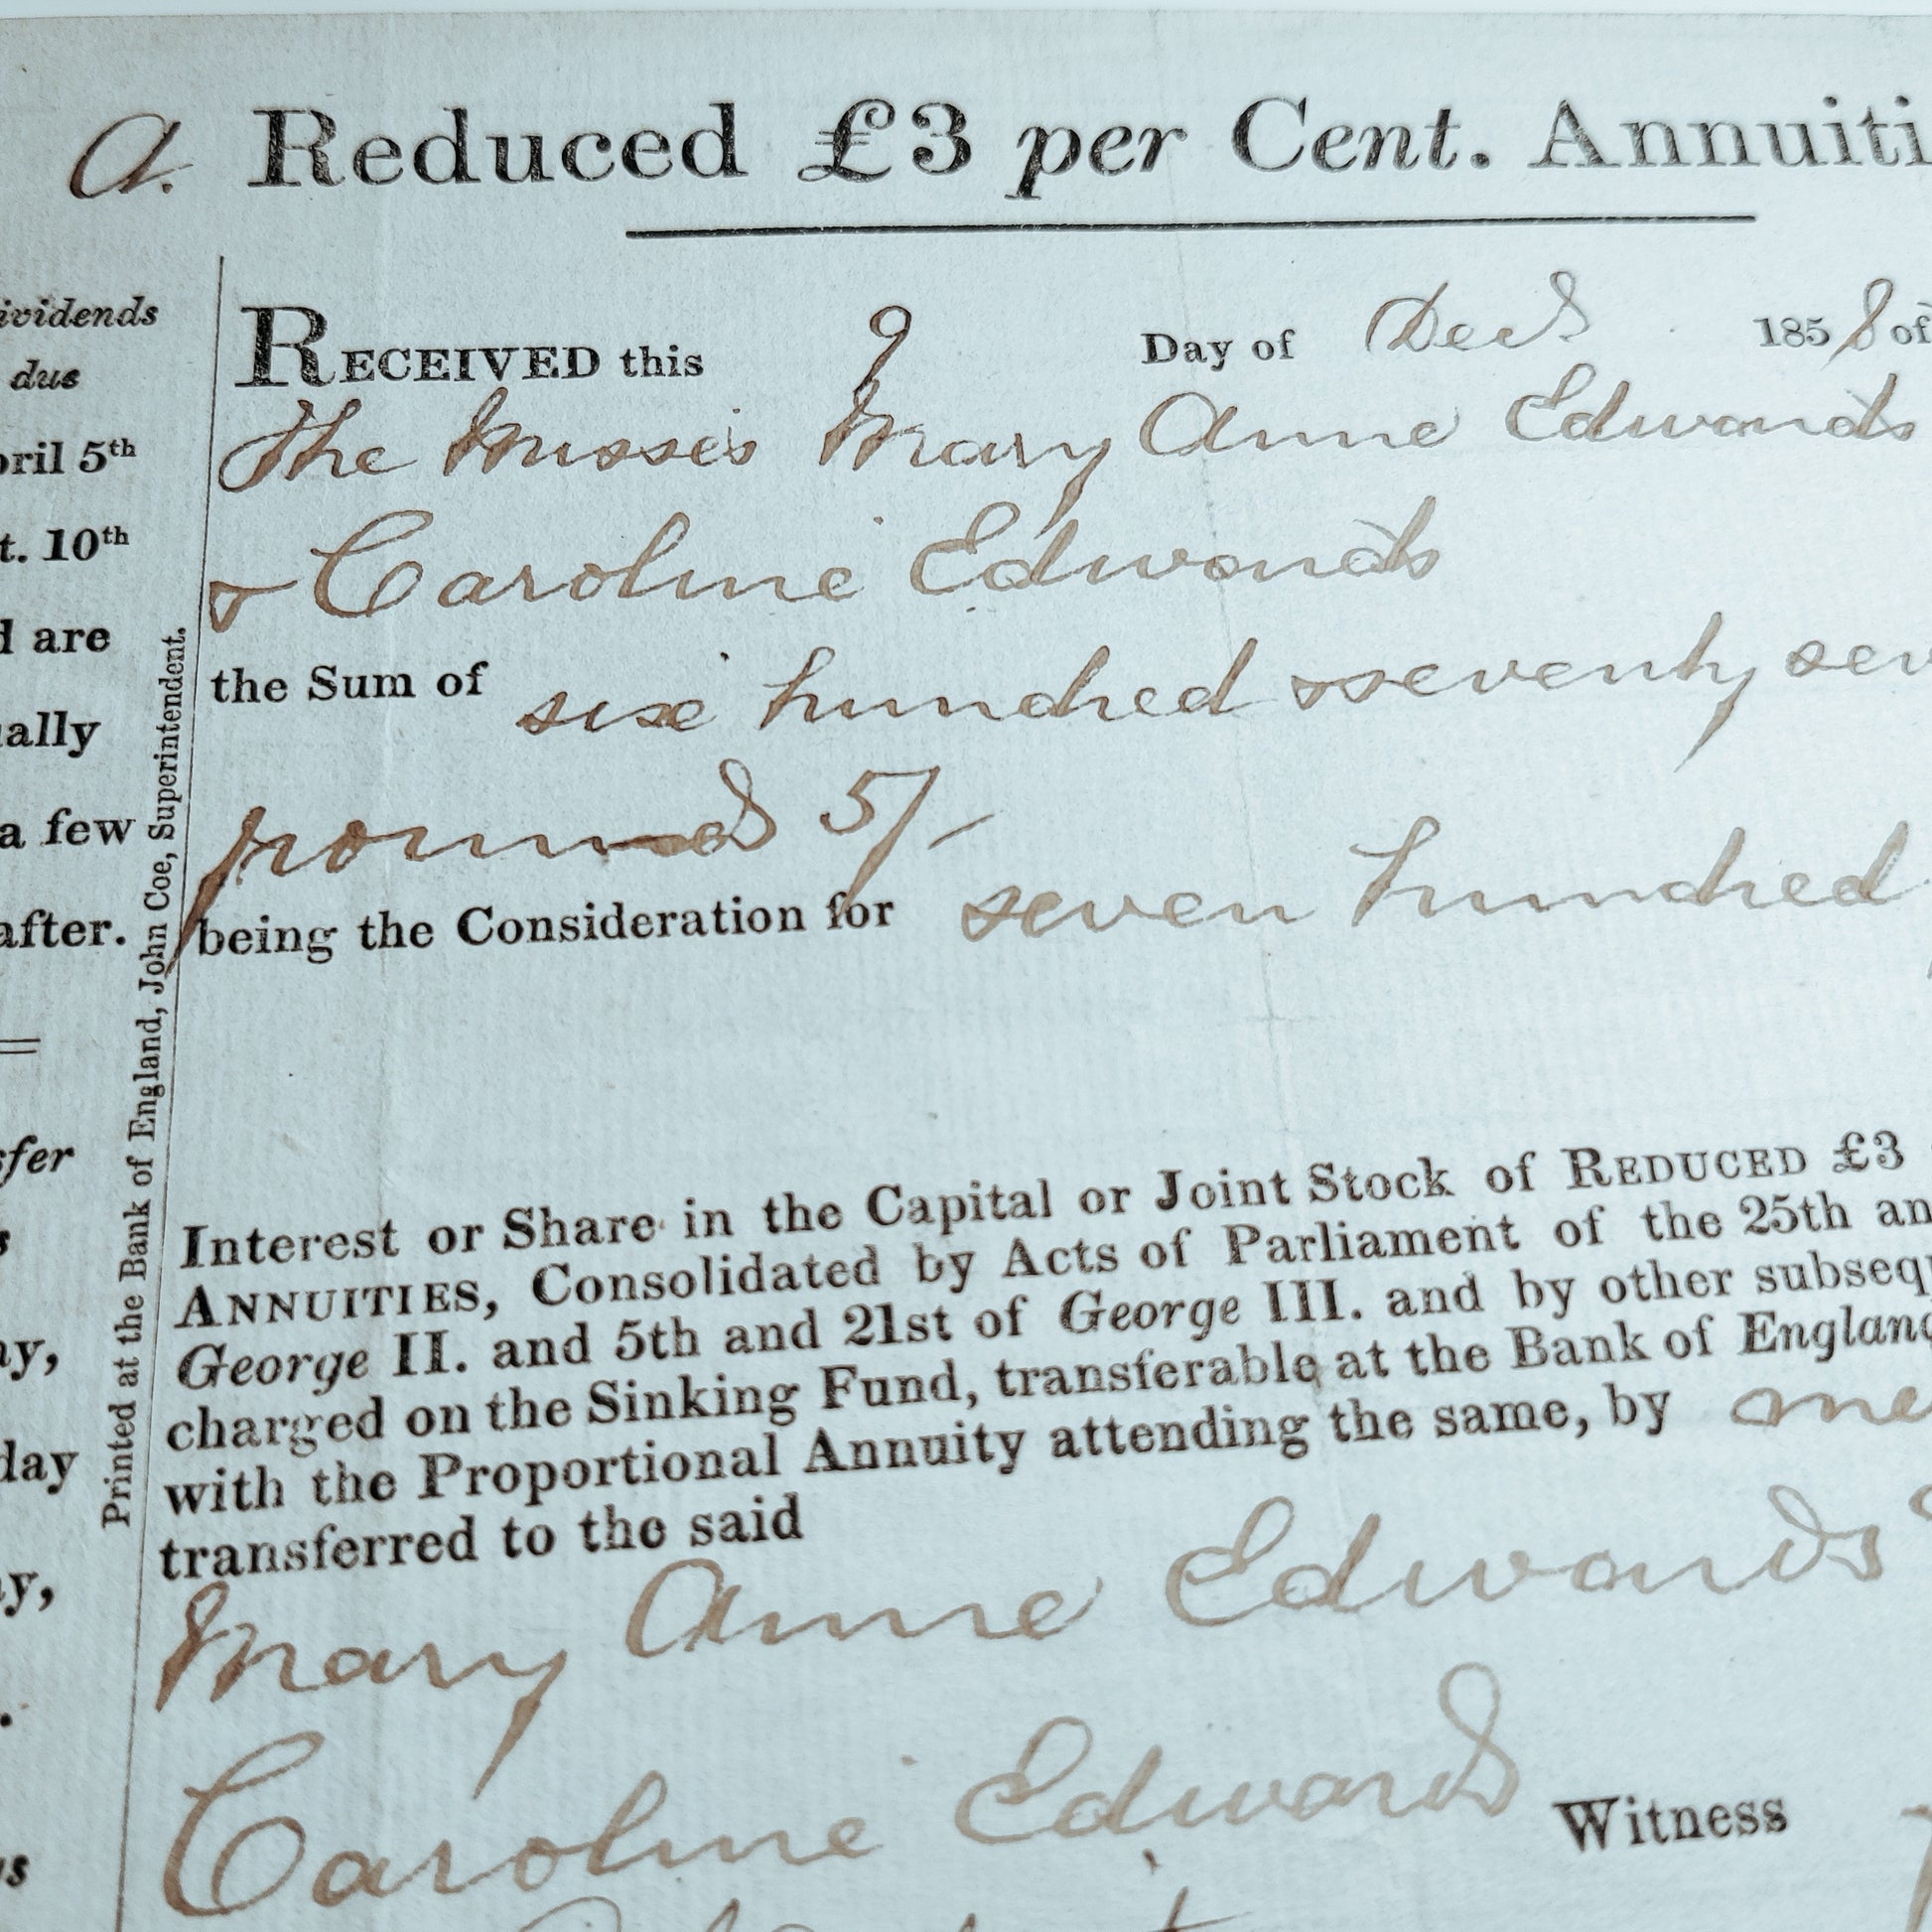 a. Reduced £3 per Cent. Annuiti
ividends
due
pril 5th
t. 10th
d are
ually
a few
after.
sfer
s
ay,
day
y,
.
us
Printed at the Bank of England, John Coe, Superintendent.
RECEIVED this 9 Day of Decr 1858 of
The Misses Mary Anne Edwards
& Caroline Edwards
the Sum of six hundred & seventy sev
pounds 5/-
being the Consideration for seven hundred
Interest or Share in the Capital or Joint Stock of REDUCED £3
ANNUITIES, Consolidated by Acts of Parliament of the 25th an
George II. and 5th and 21st of George III. and by other subsequ
charged on the Sinking Fund, transferable at the Bank of England
with the Proportional Annuity attending the same, by me
transferred to the said
Mary Anne Edwards &
Caroline Edwards
Witness